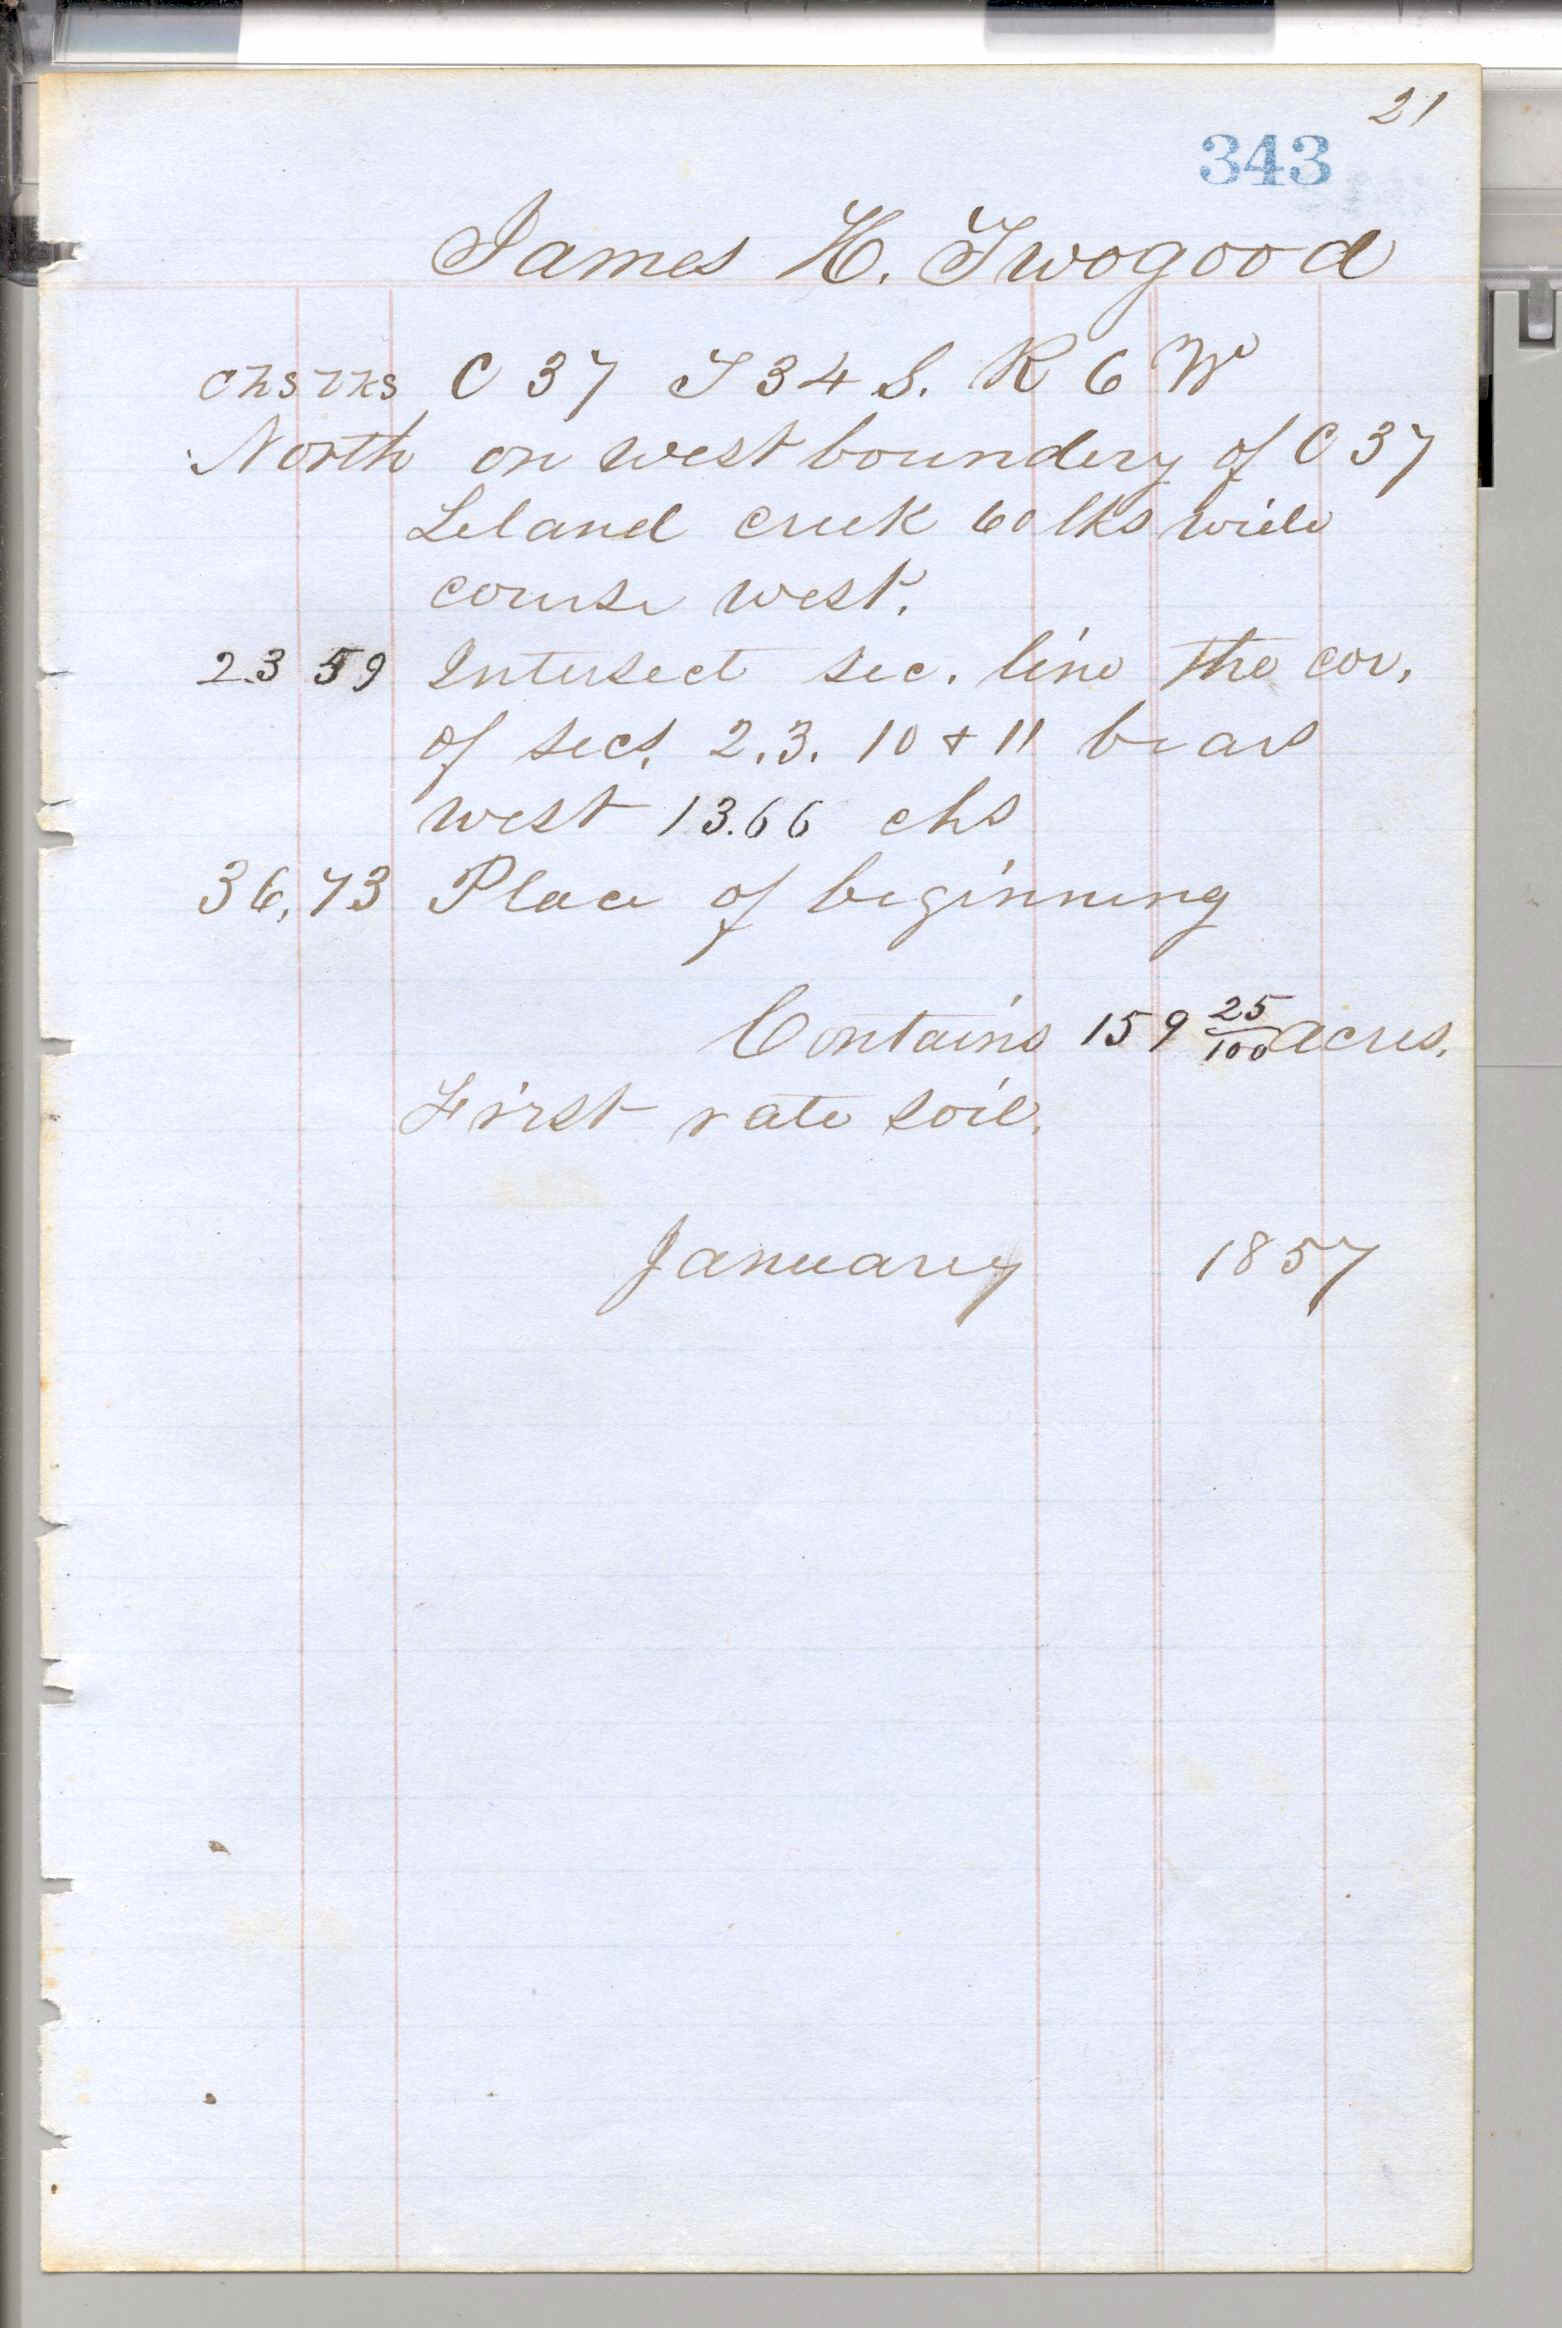 21
343
James H. Twogood
chs lks C 37 T 34 S. R 6 W
North on west boundery of C 37
Leland creek 60 lks wide
course west.
23 59 Intersect sec. line the cor.
of secs. 2.3. 10 + 11 bears
west 13.66 chs
36,73 Place of beginning
Contains 159 25/100 acres.
First rate soil.
January 1857